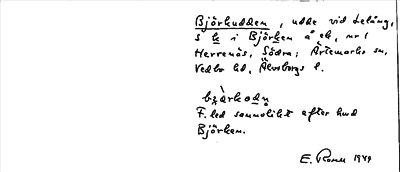 Björkudden, udde vid Lelång,
s k i Björken å ek. nr 1
Herrenäs, Södra; Ärtemarks sn,
Vedbo hd, Älvsborgs l.
F. led sannolikt efter hmd
Björken.
E. 1949